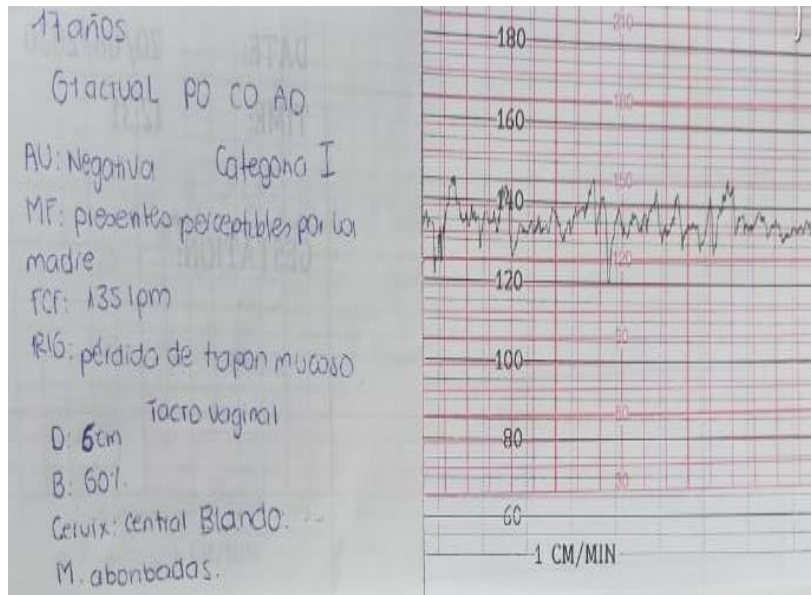 17 años
G1actual PO CO AO
AU: Negativa Categoria I
MF: presentes perceptibles por la
madre
FCF: 135 lpm
RIG: pérdida de tapon mucoso
Tacto vaginal
D: 6cm
B: 60%
Cervix: central Blando.
M. abonbadas.
210
180
180
160
150
140
120
120
90
100
60
80
30
60
1 CM/MIN